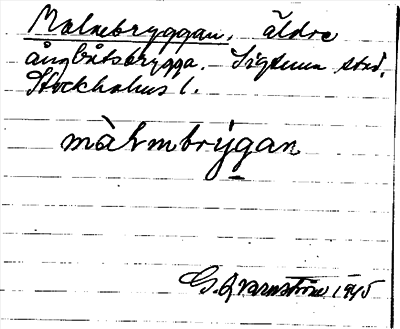 Malmbryggan, äldre
ångbåtsbrygga. Sigtuna stad,
Stockholms l.
màlmbry̱gan
G. Qvarnström 1945